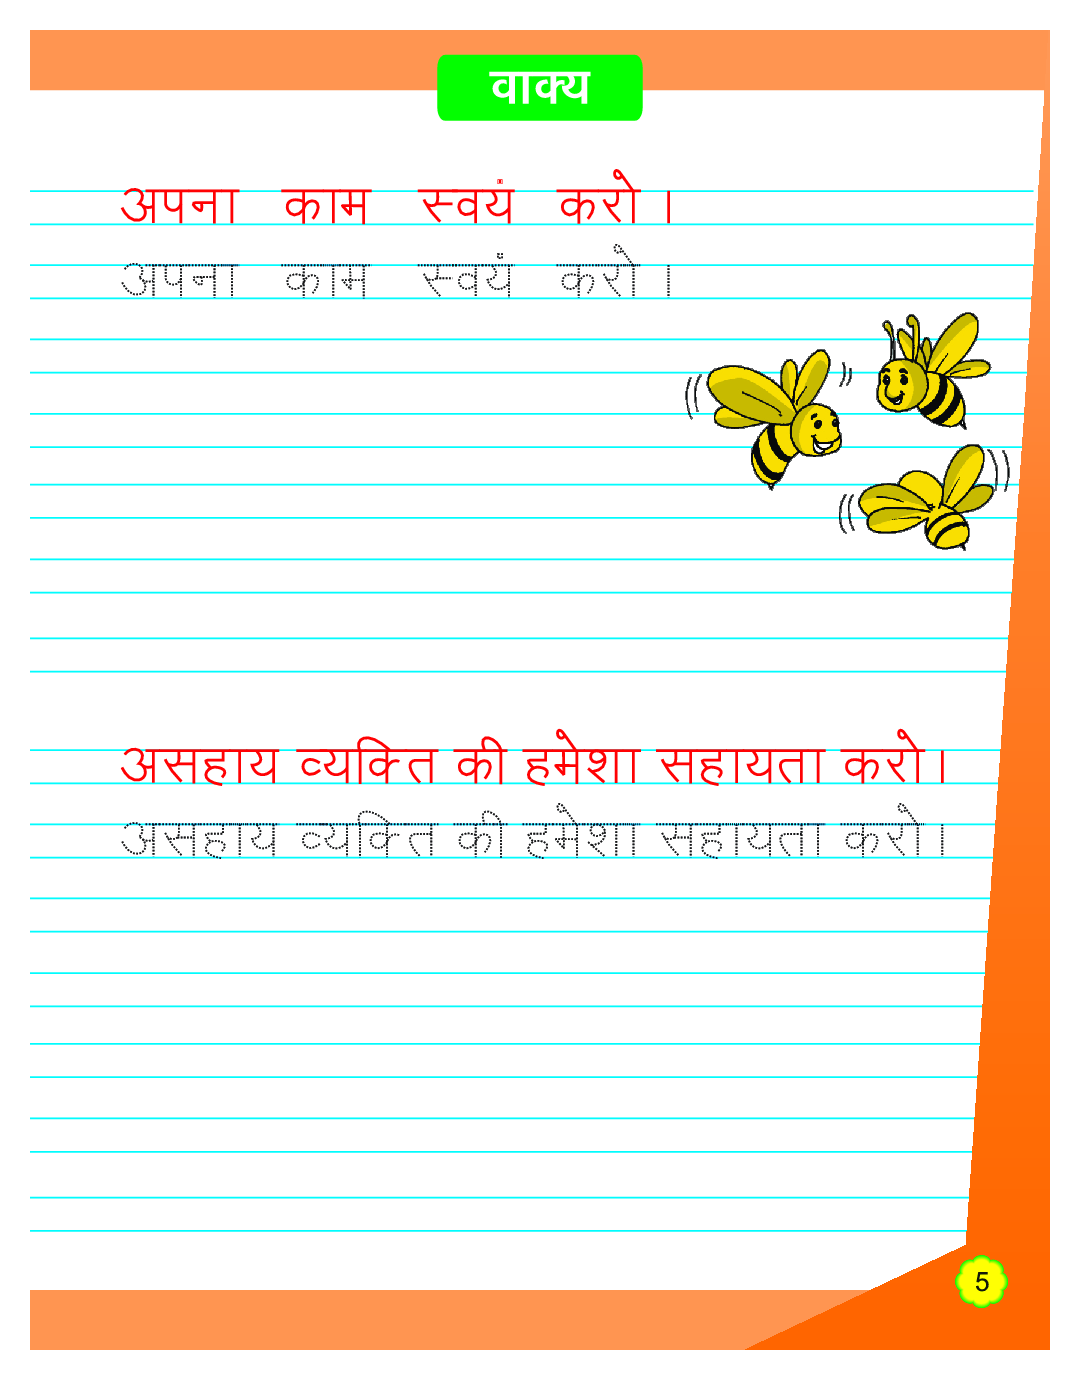 वाक्य
अपना काम स्वयं करो ।
अपना काम स्वयं करो ।
असहाय व्यक्ति की हमेशा सहायता करो।
असहाय व्यक्ति की हमेशा सहायता करो।
5